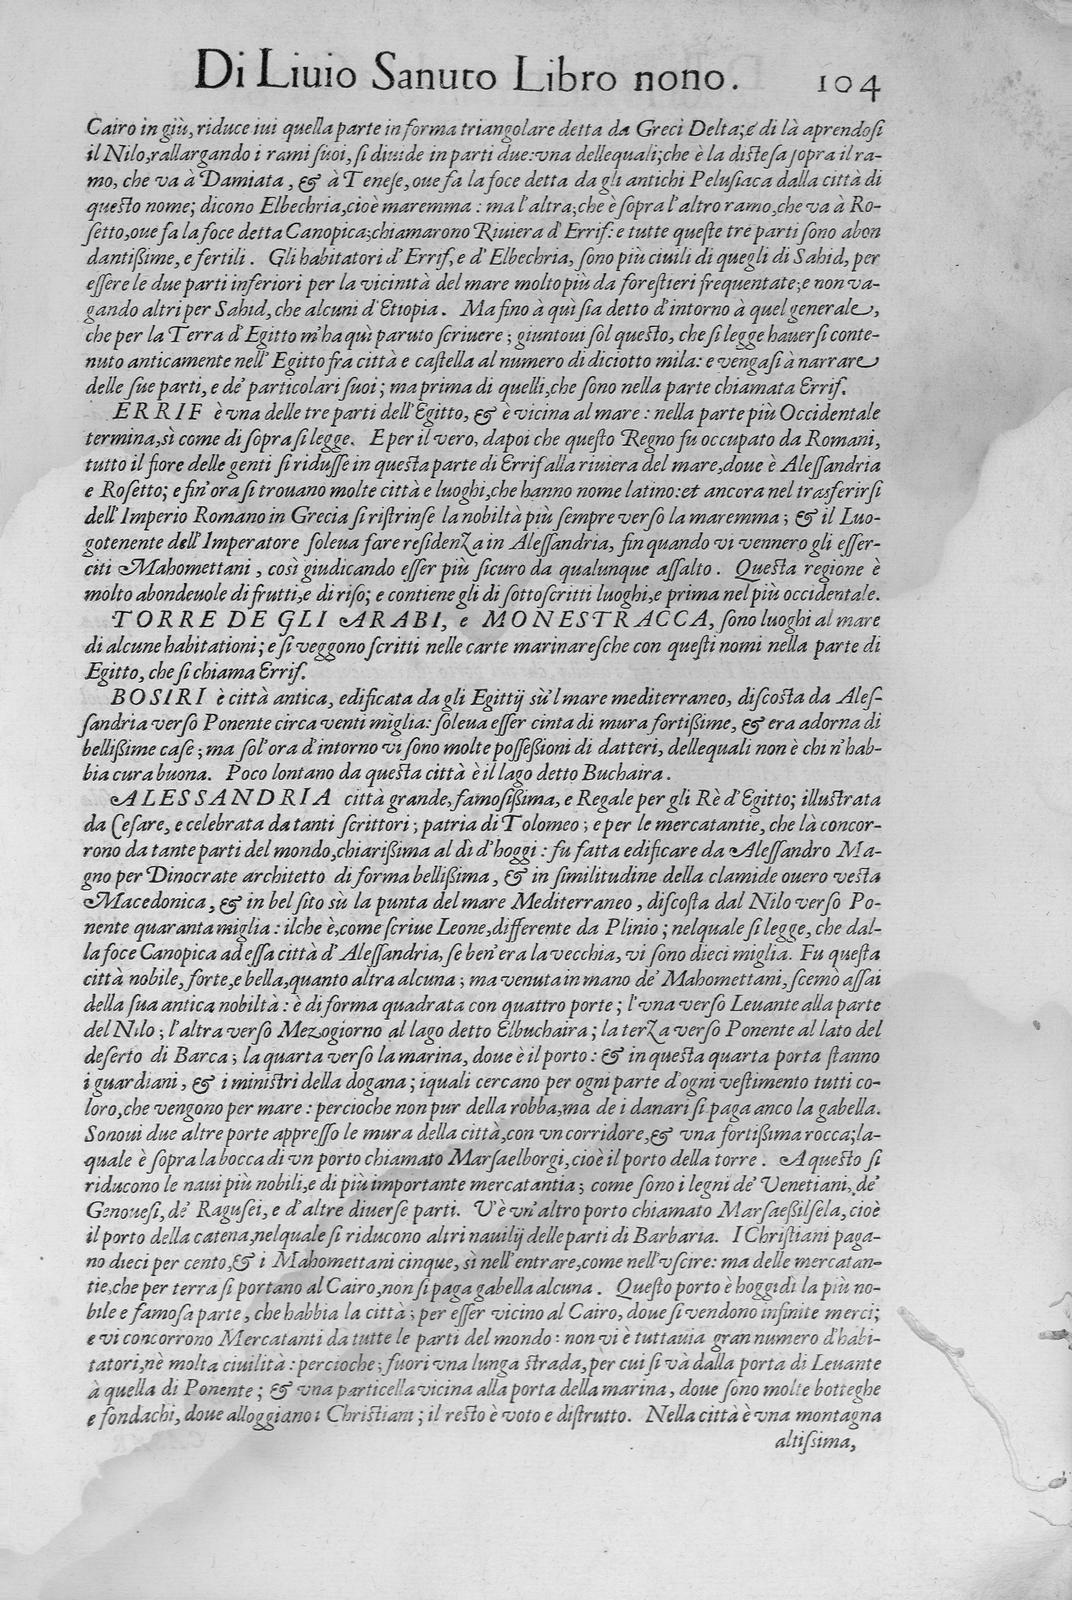 Di Liuio Sanuto Libro nono. 104
Cairo in giù, riduce iui quella parte in forma triangolare detta da Greci Delta; e di là aprendosi
il Nilo, rallargando i rami suoi, si diuide in parti due: vna dellequali; che è la distesa sopra il ra-
mo, che va à Damiata, & à Tenese, oue fa la foce detta da gli antichi Pelusiaca dalla città di
questo nome; dicono Elbechria, cioè maremma: ma l'altra; che è sopra l'altro ramo, che va à Ro-
setto, oue fa la foce detta Canopica; chiamarono Riuiera d'Errif: e tutte queste tre parti sono abon
dantißime, e fertili. Gli habitatori d'Errif, e d'Elbechria, sono più ciuili di quegli di Sahid, per
essere le due parti inferiori per la vicinità del mare molto più da forestieri frequentate; e non va-
gando altri per Sahid, che alcuni d'Etiopia. Ma fino à quì sia detto d'intorno à quel generale,
che per la Terra d'Egitto m'ha quì paruto scriuere; giuntoui sol questo, che si legge hauersi conte-
nuto anticamente nell'Egitto fra città e castella al numero di diciotto mila: e vengasi à narrare
delle sue parti, e de' particolari suoi; ma prima di quelli, che sono nella parte chiamata Errif.
ERRIF è vna delle tre parti dell'Egitto, & è vicina al mare: nella parte più Occidentale
termina, sì come di sopra si legge. E per il vero, dapoi che questo Regno fu occupato da Romani,
tutto il fiore delle genti si ridusse in questa parte di Errif alla riuiera del mare, doue è Alessandria
e Rosetto; e fin'ora si trouano molte città e luoghi, che hanno nome latino: et ancora nel trasferirsi
dell'Imperio Romano in Grecia si ristrinse la nobiltà più sempre verso la maremma; & il Luo-
gotenente dell'Imperatore soleua fare residenza in Alessandria, fin quando vi vennero gli esser-
citi Mahomettani, così giudicando esser più sicuro da qualunque assalto. Questa regione è
molto abondeuole di frutti, e di riso; e contiene gli di sottoscritti luoghi, e prima nel più occidentale.
TORRE DE GLI ARABI, e MONESTRACCA, sono luoghi al mare
di alcune habitationi; e si veggono scritti nelle carte marinaresche con questi nomi nella parte di
Egitto, che si chiama Errif.
BOSIRI è città antica, edificata da gli Egittij sù'l mare mediterraneo, discosta da Ales-
sandria verso Ponente circa venti miglia: soleua esser cinta di mura fortißime, & era adorna di
bellißime case; ma sol'ora d'intorno vi sono molte possessioni di datteri, dellequali non è chi n'hab-
bia cura buona. Poco lontano da questa città è il lago detto Buchaira.
ALESSANDRIA città grande, famosißima, e Regale per gli Rè d'Egitto; illustrata
da Cesare, e celebrata da tanti scrittori; patria di Tolomeo; e per le mercatantie, che là concor-
rono da tante parti del mondo, chiarißima al dì d'hoggi: fu fatta edificare da Alessandro Ma-
gno per Dinocrate architetto di forma bellißima, & in similitudine della clamide ouero vesta
Macedonica, & in bel sito sù la punta del mare Mediterraneo, discosta dal Nilo verso Po-
nente quaranta miglia: ilche è, come scriue Leone, differente da Plinio; nelquale si legge, che dal-
la foce Canopica ad essa città d'Alessandria, se ben'era la vecchia, vi sono dieci miglia. Fu questa
città nobile, forte, e bella, quanto altra alcuna; ma venuta in mano de' Mahomettani, scemò assai
della sua antica nobiltà: è di forma quadrata con quattro porte; l'vna verso Leuante alla parte
del Nilo; l'altra verso Mezogiorno al lago detto Elbuchaira; la terza verso Ponente al lato del
deserto di Barca; la quarta verso la marina, doue è il porto: & in questa quarta porta stanno
i guardiani, & i ministri della dogana; iquali cercano per ogni parte d'ogni vestimento tutti co-
loro, che vengono per mare: percioche non pur della robba, ma de i danari si paga anco la gabella.
Sonoui due altre porte appresso le mura della città, con vn corridore, & vna fortißima rocca; la-
quale è sopra la bocca di vn porto chiamato Marsaelborgi, cioè il porto della torre. A questo si
riducono le naui più nobili, e di più importante mercatantia; come sono i legni de' Venetiani, de'
Genouesi, de' Ragusei, e d'altre diuerse parti. V'è vn'altro porto chiamato Marsaeßilsela, cioè
il porto della catena, nelquale si riducono altri nauilij delle parti di Barbaria. I Christiani paga-
no dieci per cento, & i Mahomettani cinque, sì nell'entrare, come nell'vscire: ma delle mercatan-
tie, che per terra si portano al Cairo, non si paga gabella alcuna. Questo porto è hoggidì la più no-
bile e famosa parte, che habbia la città; per esser vicino al Cairo, doue si vendono infinite merci;
e vi concorrono Mercatanti da tutte le parti del mondo: non vi è tuttauia gran numero d'habi-
tatori, nè molta ciuilità: percioche; fuori vna lunga strada, per cui si và dalla porta di Leuante
à quella di Ponente; & vna particella vicina alla porta della marina, doue sono molte botteghe
e fondachi, doue alloggiano i Christiani; il resto è voto e distrutto. Nella città è vna montagna
altissima,